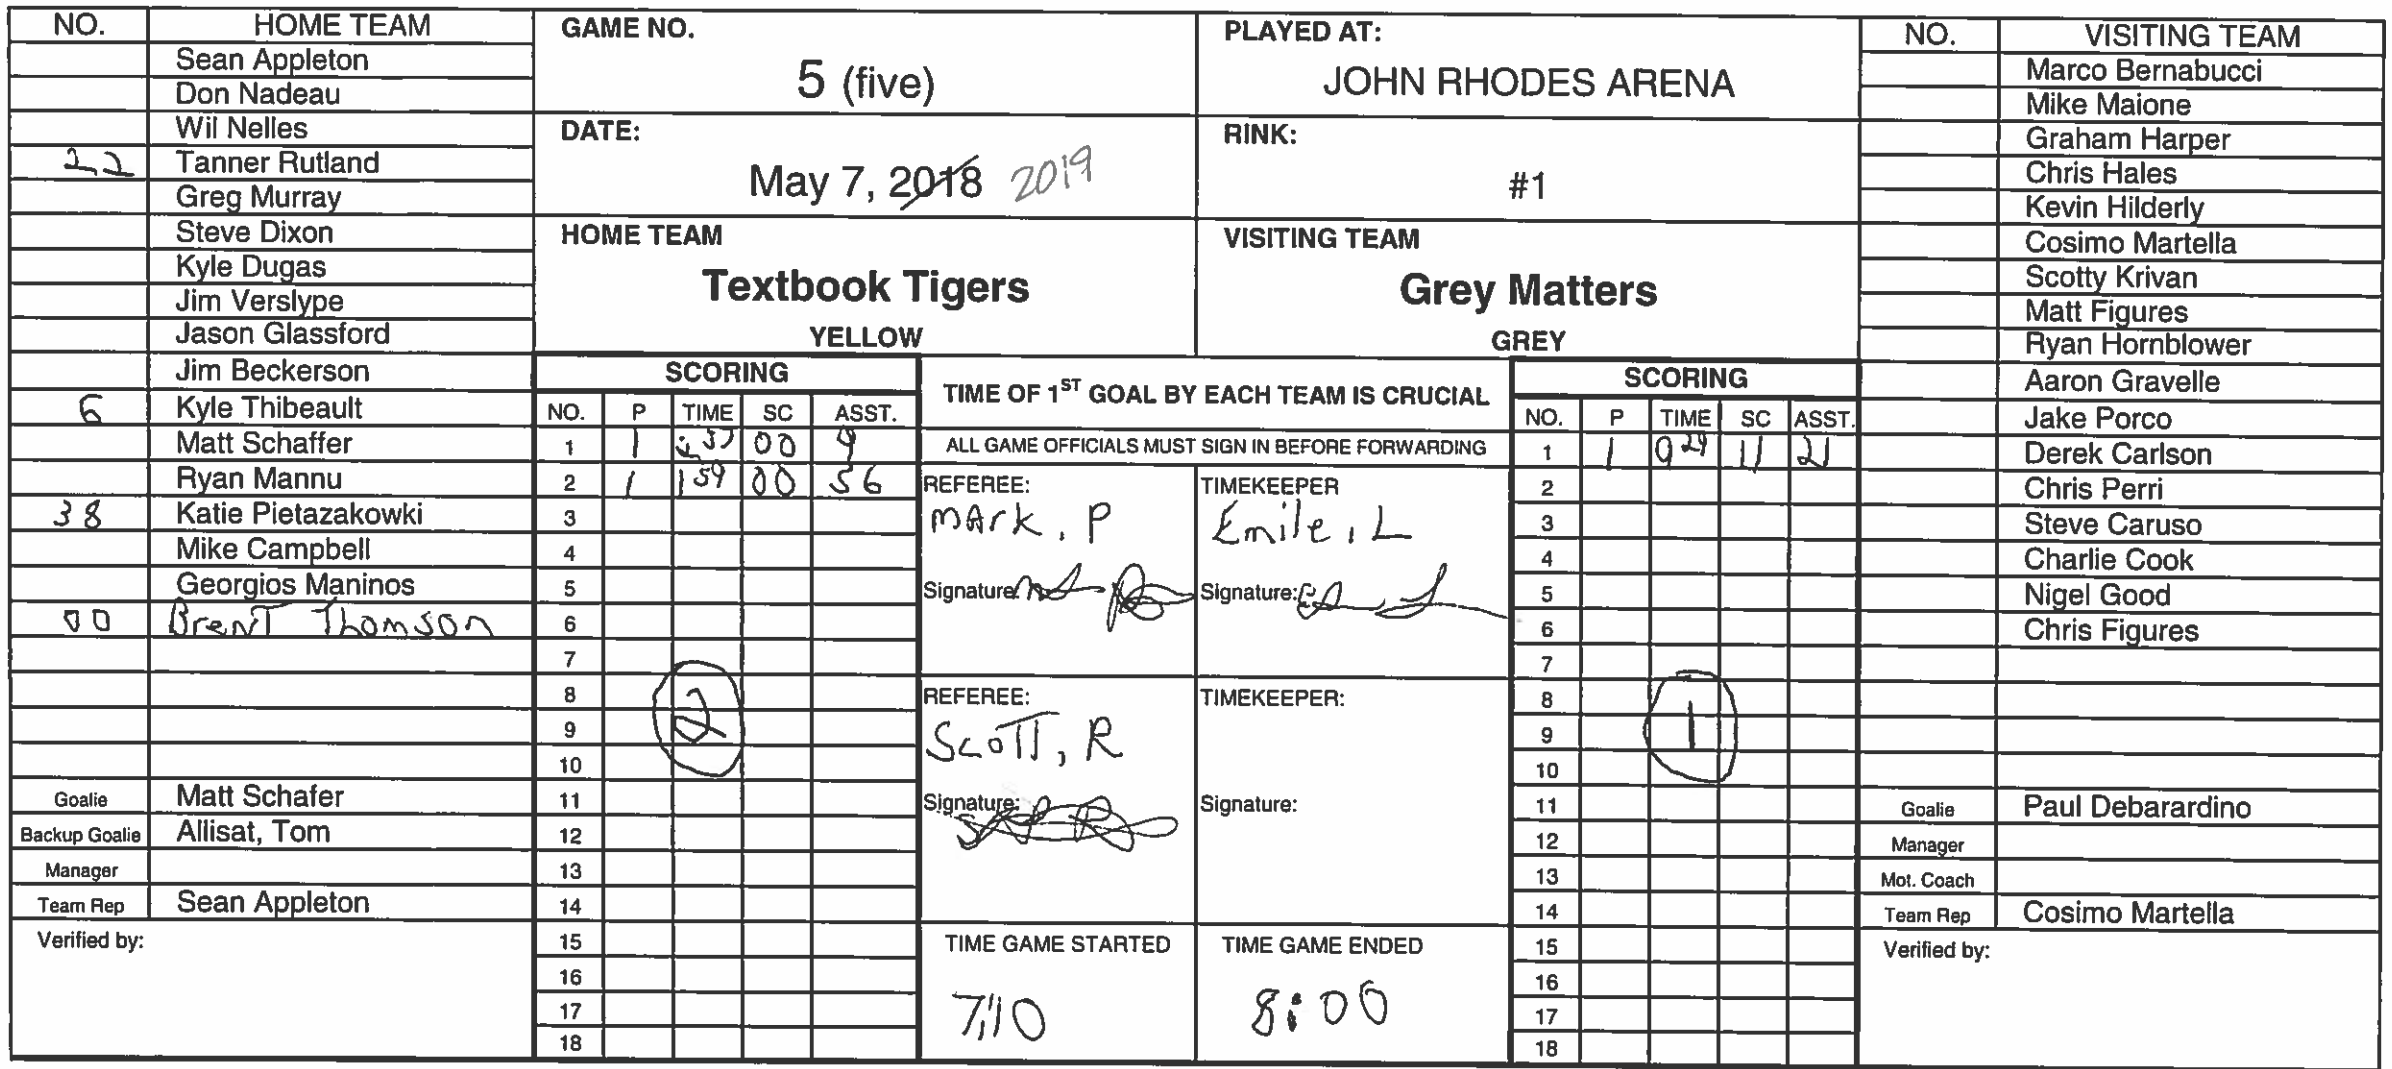 NO. HOME TEAM
Sean Appleton
Don Nadeau
Wil Nelles
22 Tanner Rutland
Greg Murray
Steve Dixon
Kyle Dugas
Jim Verslype
Jason Glassford
Jim Beckerson
6 Kyle Thibeault
Matt Schaffer
Ryan Mannu
38 Katie Pietazakowki
Mike Campbell
Georgios Maninos
00 Brent Thomson
Goalie Matt Schafer
Backup Goalie Allisat, Tom
Manager
Team Rep Sean Appleton
Verified by:
GAME NO.
5 (five)
PLAYED AT:
JOHN RHODES ARENA
DATE:
May 7, 2018 2019
RINK:
#1
HOME TEAM
Textbook Tigers
YELLOW
VISITING TEAM
Grey Matters
GREY
SCORING
NO. P TIME SC ASST.
1 1 00 9
2 1 1 59 00 56
3
4
5
6
7
8
9
10
11
12
13
14
15
16
17
18
2
TIME OF 1ST GOAL BY EACH TEAM IS CRUCIAL
ALL GAME OFFICIALS MUST SIGN IN BEFORE FORWARDING
REFEREE:
Mark, P
Signature:
TIMEKEEPER
Emile, L
Signature:
REFEREE:
Scott, R
Signature:
TIMEKEEPER:
Signature:
TIME GAME STARTED
7:10
TIME GAME ENDED
8:00
SCORING
NO. P TIME SC ASST.
1 1 9 29 11 21
2
3
4
5
6
7
8
9
10
11
12
13
14
15
16
17
18
1
NO. VISITING TEAM
Marco Bernabucci
Mike Maione
Graham Harper
Chris Hales
Kevin Hilderly
Cosimo Martella
Scotty Krivan
Matt Figures
Ryan Hornblower
Aaron Gravelle
Jake Porco
Derek Carlson
Chris Perri
Steve Caruso
Charlie Cook
Nigel Good
Chris Figures
Goalie Paul Debarardino
Manager
Mot. Coach
Team Rep Cosimo Martella
Verified by: